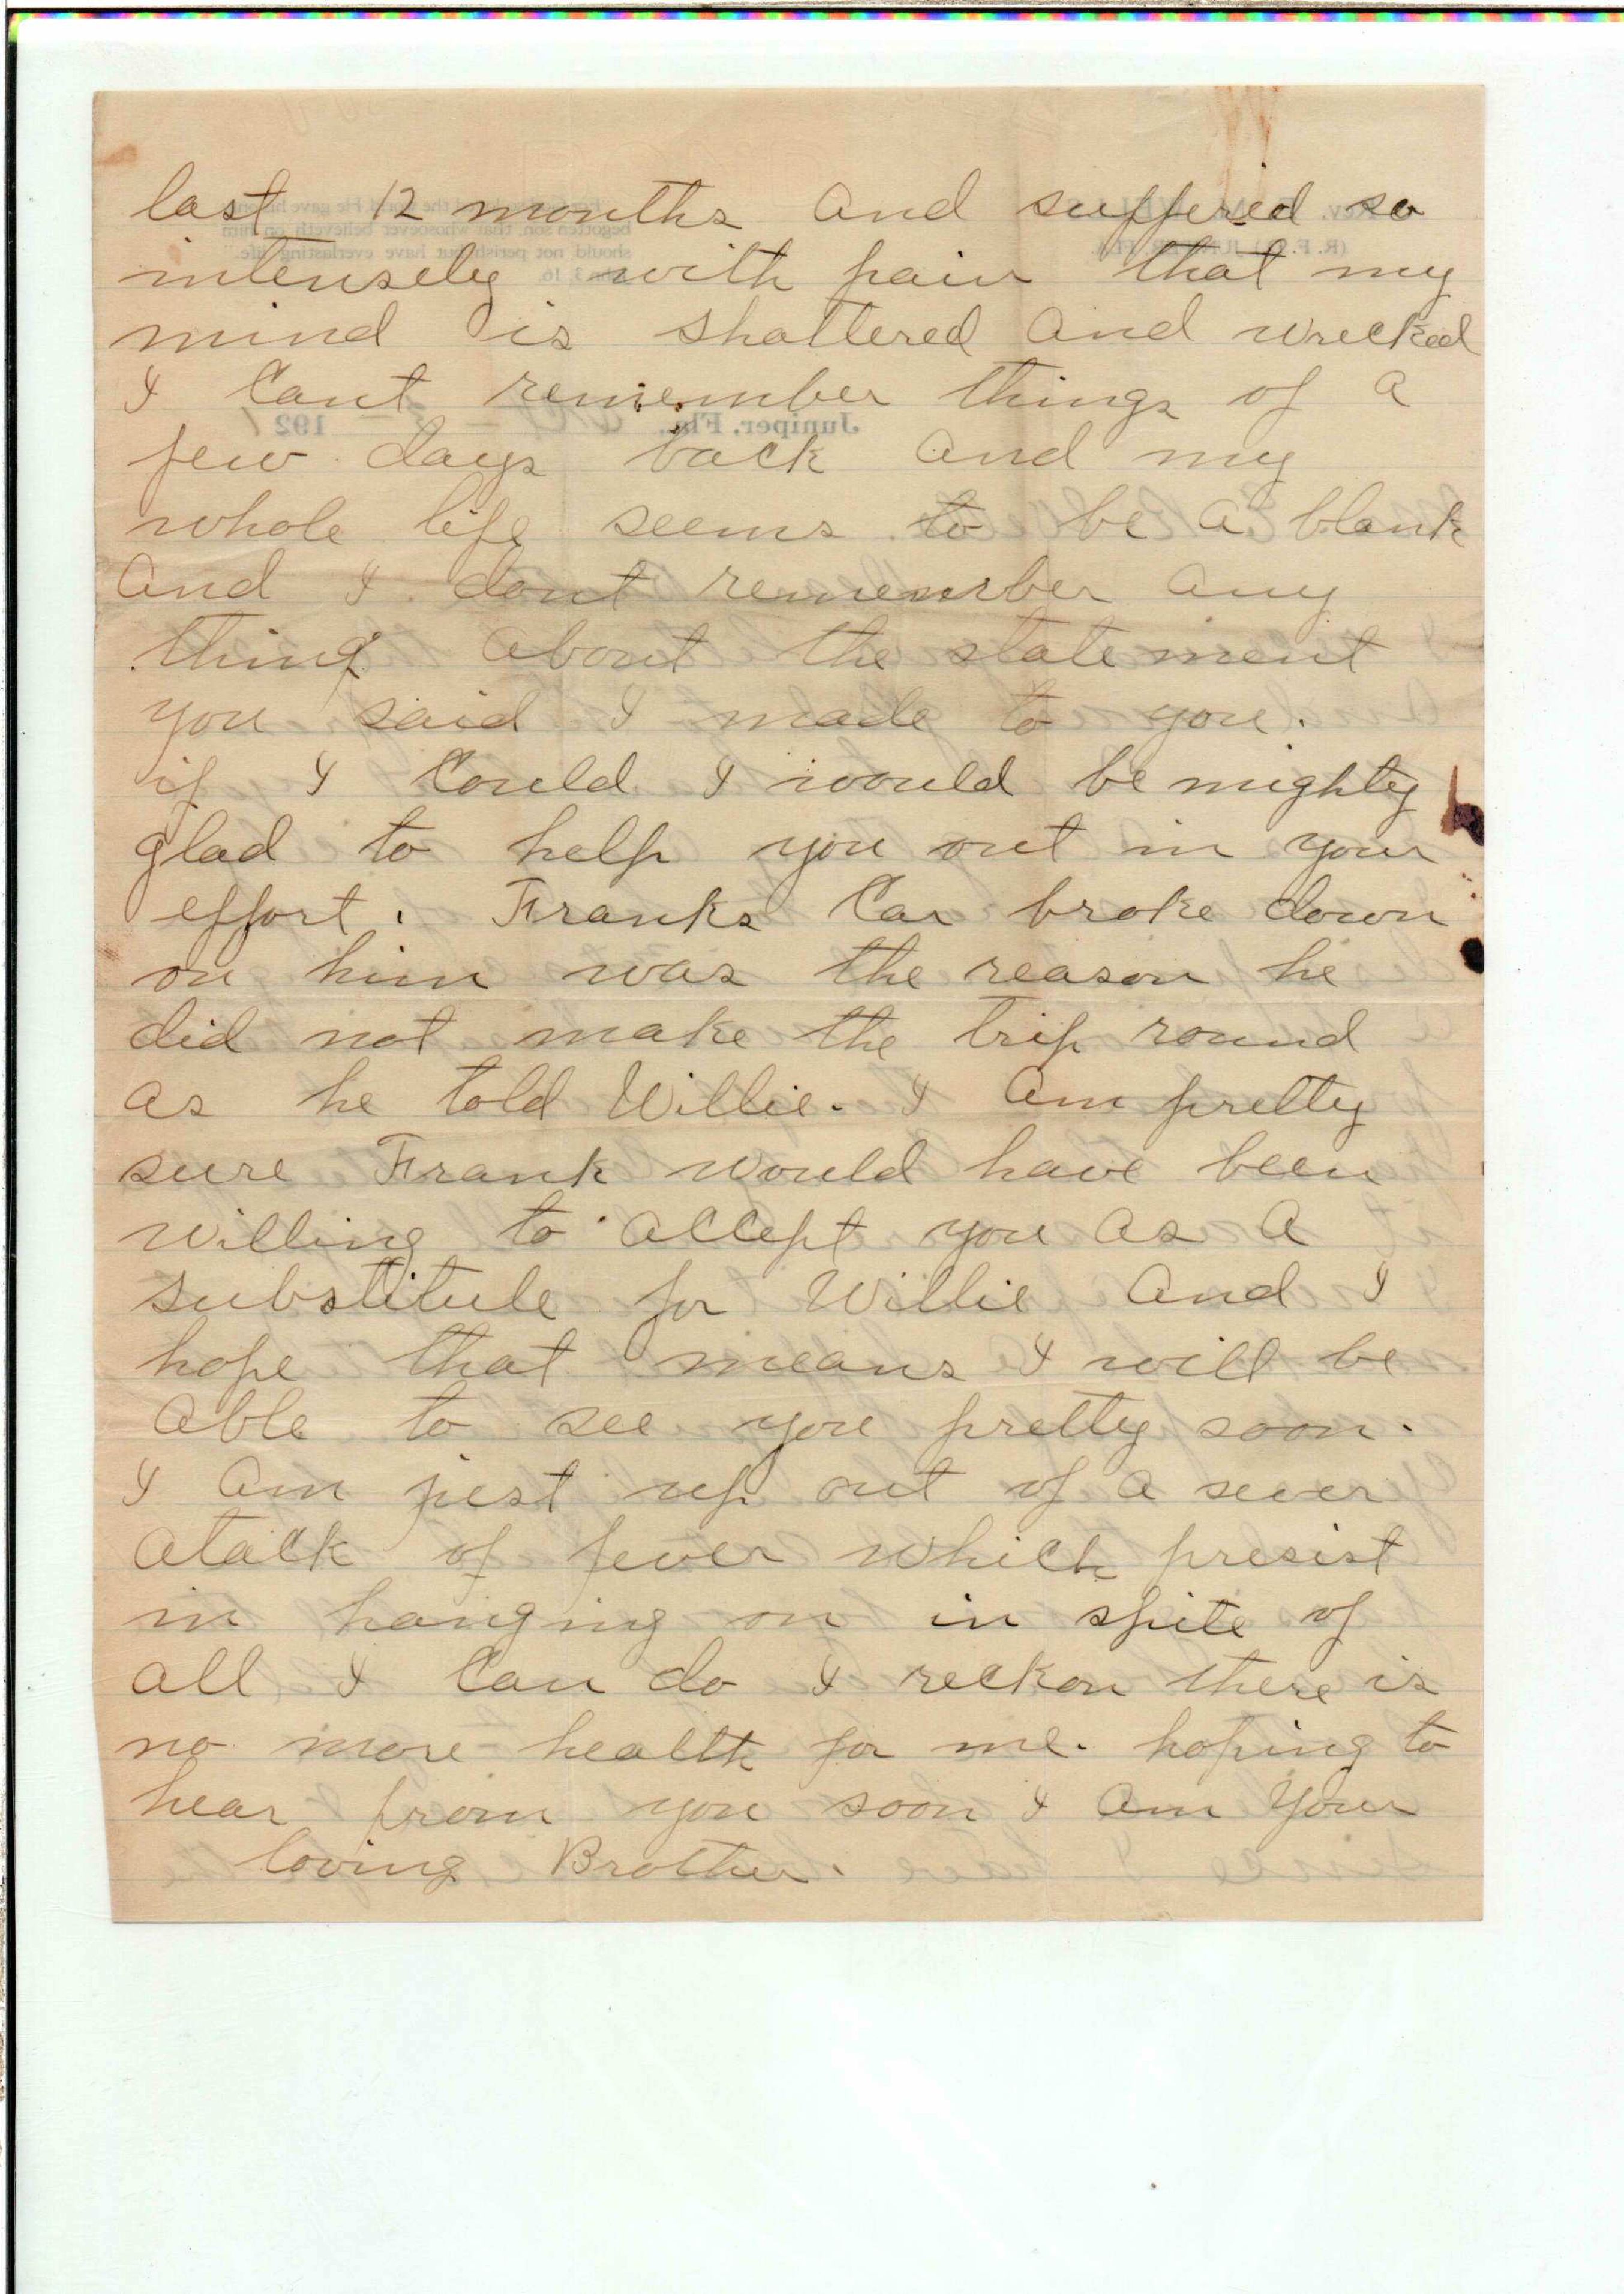 last 12 months and suffered so
intensely with pain that my
mind is shattered and wrecked
I Cant remember things of a
few days back and my
whole life seems to be a blank
and I dont remember any
thing about the statement
you said I made to you.
if I Could I would be mighty
glad to help you out in your
effort. Franks Car broke down
on him was the reason he
did not make the trip round
as he told Willie. I am pretty
sure Frank would have been
willing to accept you as a
substitute for Willie and I
hope that means I will be
able to see you pretty soon.
I am just up out of a sever
atack of fever which presist
in hanging on in spite of
all I Can do I reckon there is
no more health for me. hoping to
hear from you soon I am Your
loving Brother.
Juniper, Fla., 192
begotten son, that whosoever believeth on him
should not perish but have everlasting life.